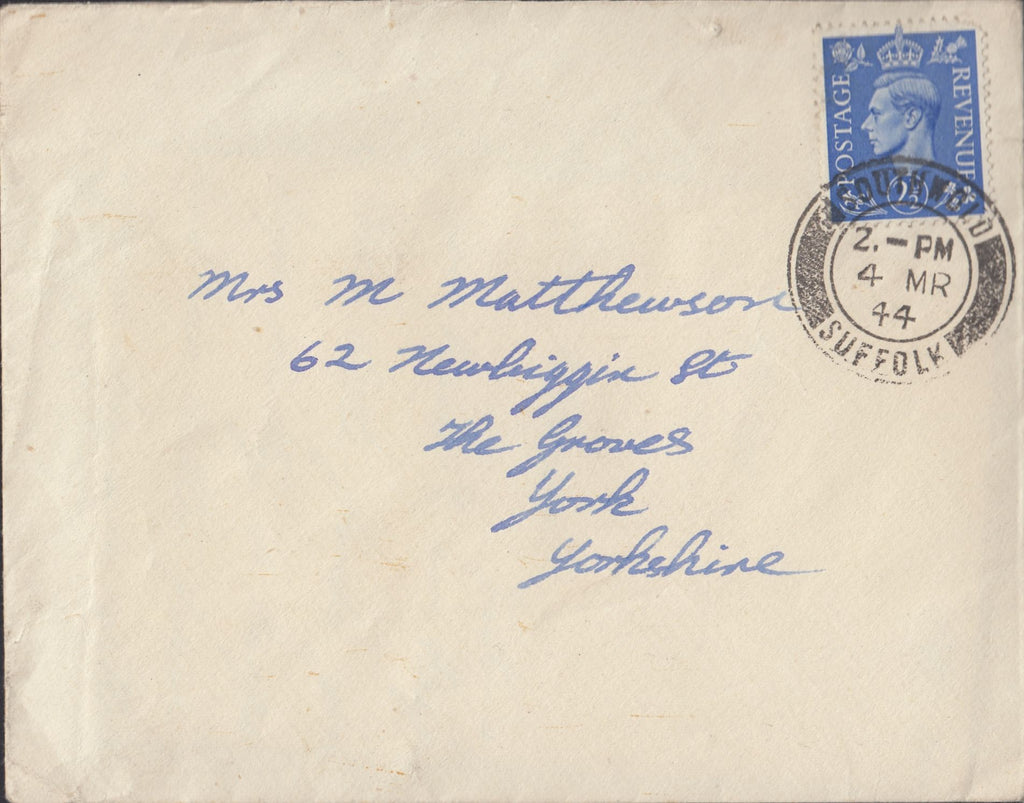 POSTAGE REVENUE
2½
SOUTHWOLD
2.-PM
4 MR
44
SUFFOLK
Mrs M Matthewson
62 Newbiggin St
The Groves
York
Yorkshire